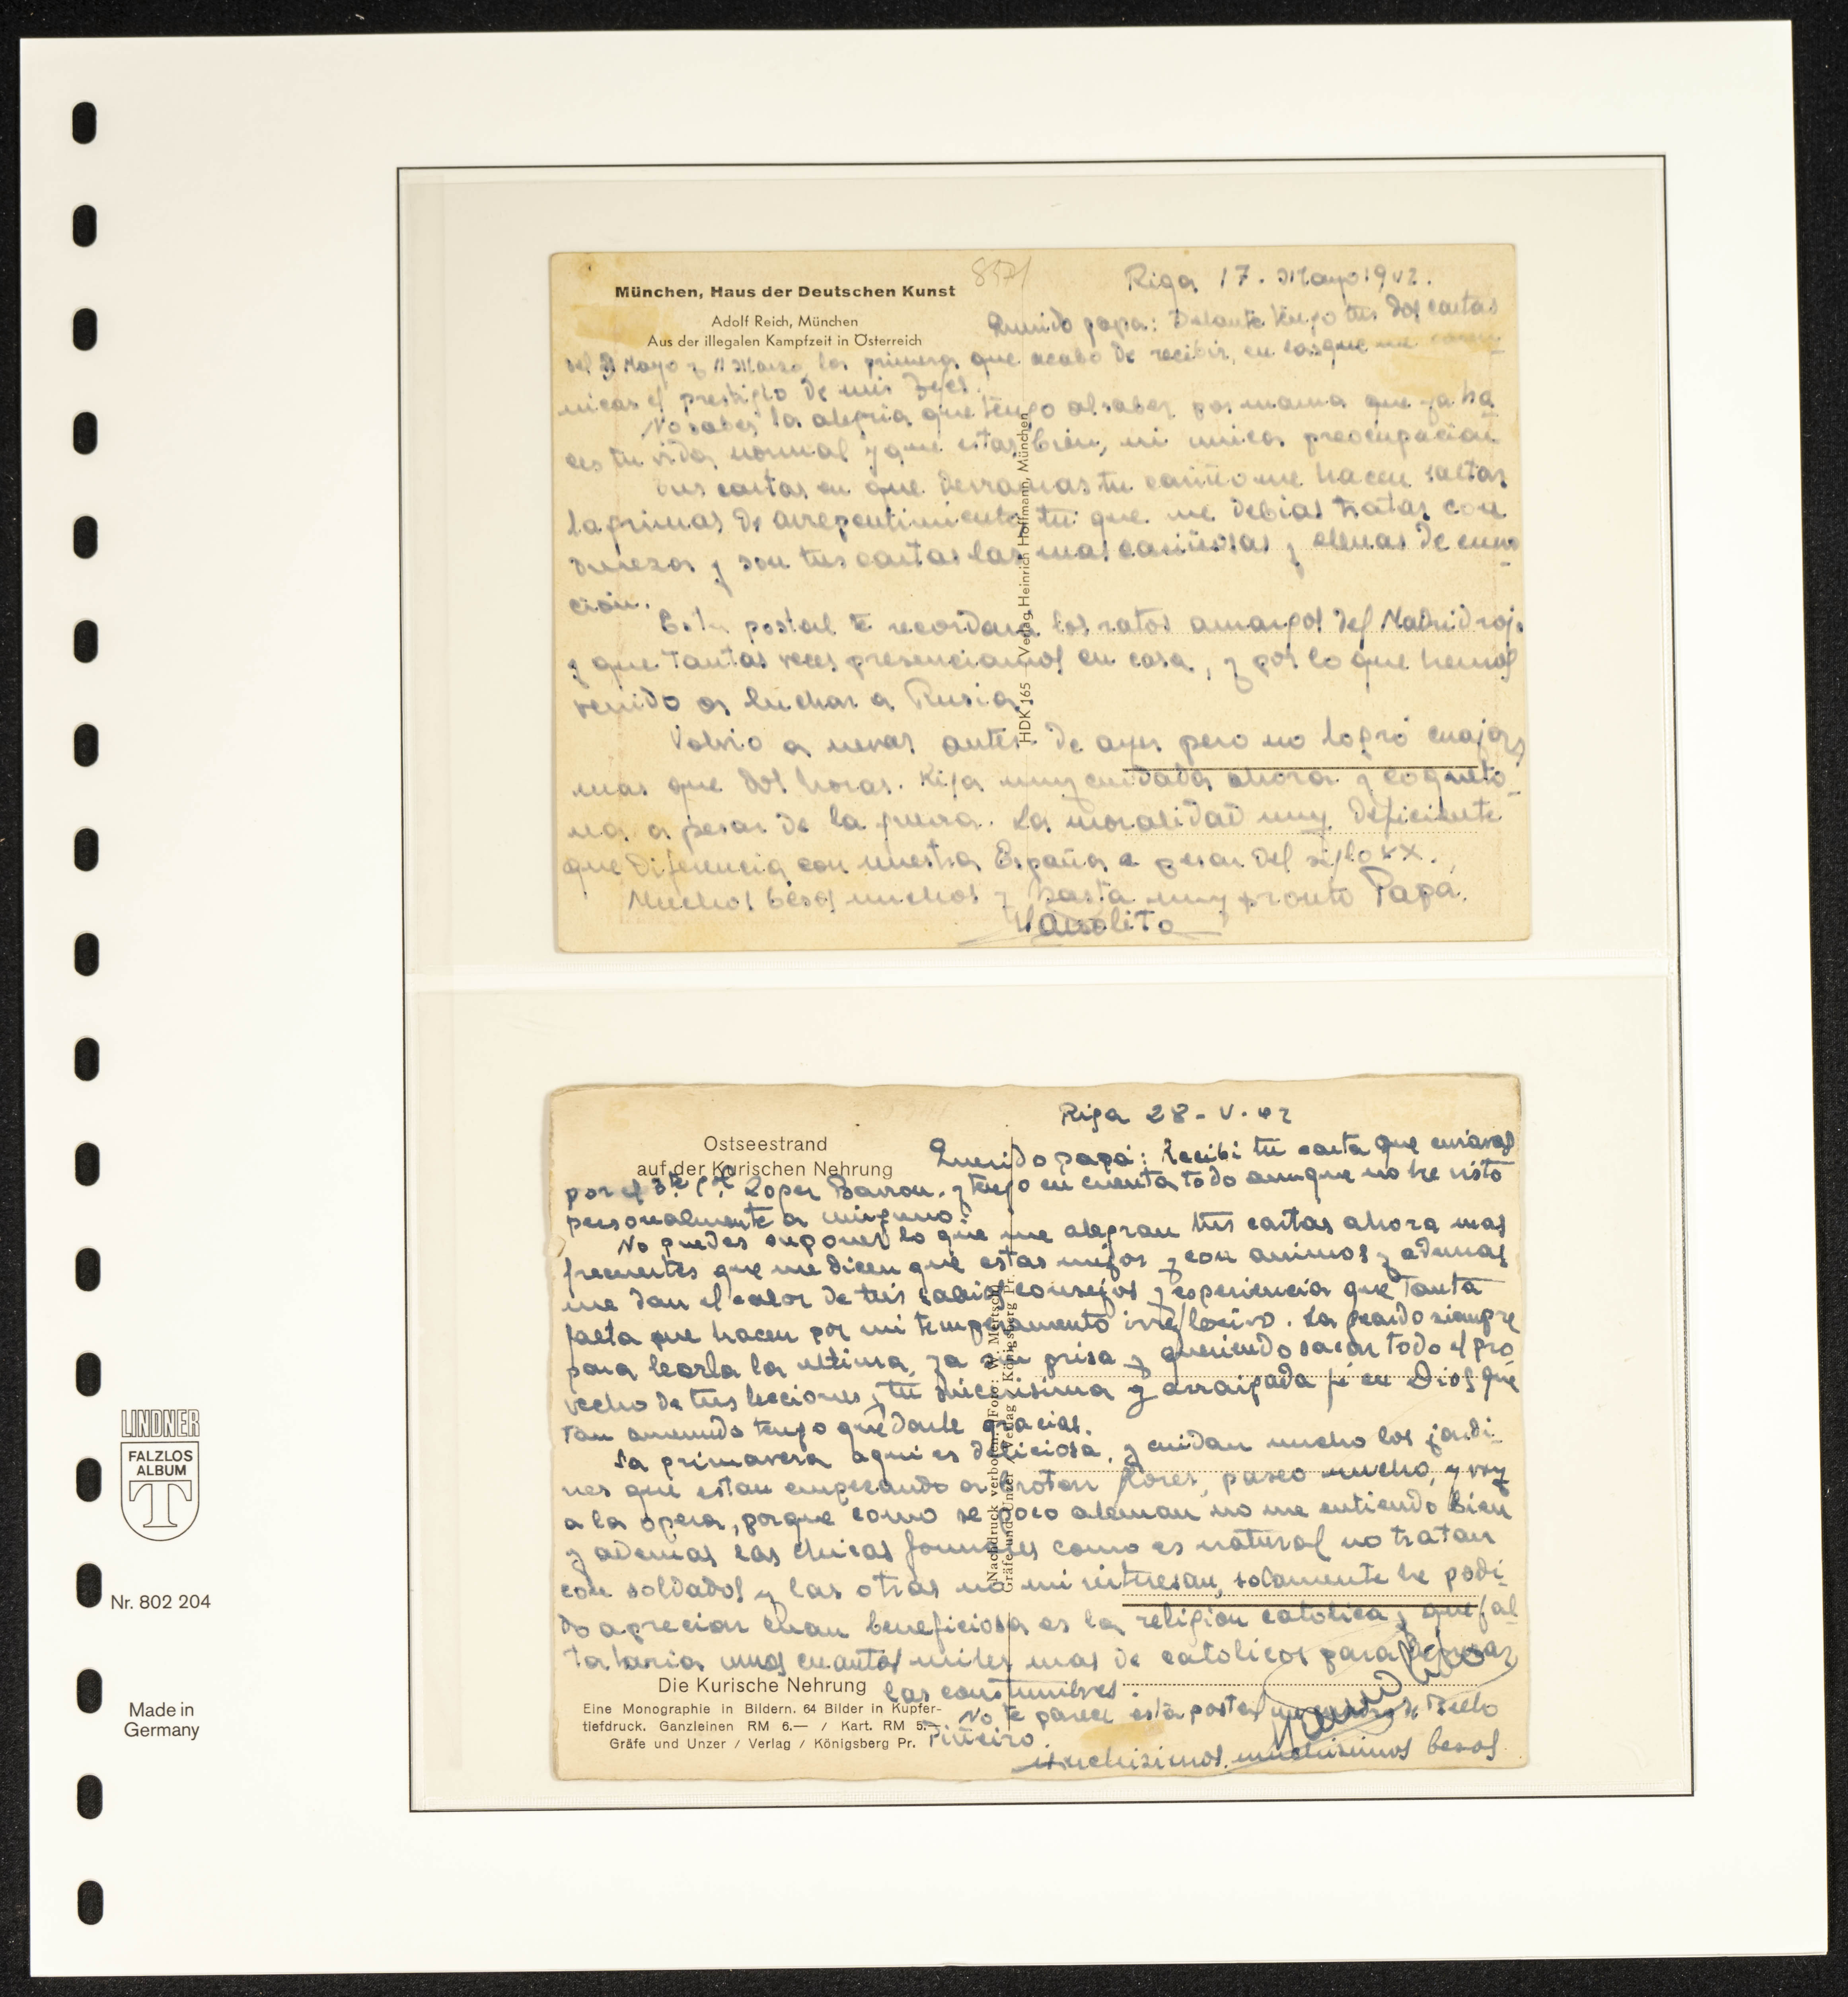 8571
Riga 17. Mayo 1942.
München, Haus der Deutschen Kunst
Adolf Reich, München
Aus der illegalen Kampfzeit in Österreich
Querido papa: Delante tengo tus dos cartas
del Mayo y 11 Marzo, las primeras que acabo de recibir, en las que me
nicas el prestigio de mis Jefes.
No sabes la alegria que tengo al saber por mama que ya ha
ces tu vida normal y que estas bien, mi unica preocupacion
Tus cartas en que derramas tu cariño me hacen saltar
lagrimas de arrepentimiento tu que me debias tratar con
dureza y son tus cartas las mas cariñosas y llenas de emo
ción.
Esta postal te recordara los ratos amargos del Madrid rojo
y que tantas veces presenciamos en casa, y por lo que hemos
venido a luchar a Rusia.
Volvio a nevar antes de ayer pero no logró cuajar
mas que dos horas. Riga muy cuidada ahora y coqueto-
na a pesar de la guerra. La moralidad muy deficiente
que diferencia con nuestra España a pesar del siglo XX.
Muchos besos muchos y hasta muy pronto Papá.
Manolito
HDK 165 — Verlag Heinrich Hoffmann, München
Riga 28-V-42
Ostseestrand
auf der Kurischen Nehrung
Querido papá: Recibi tu carta que enviaras
por el Lopez Barron. y tengo en cuenta todo aunque no he visto
personalmente a ninguno.
No puedes suponer lo que me alegran tus cartas ahora mas
frecuentes que me dicen que estas mejor y con animos y ademas
me dan el calor de tus sabios consejos y esperiencia que tanta
falta que hacen por mi temperamento irreflexivo. La guardo siempre
para leerla la ultima, ya sin prisa y queriendo sacar todo el pro
vecho de tus lecciones y tu sincerisima y arraigada fé en Dios que
tan amenudo tengo que darle gracias.
La primavera aqui es deliciosa, y cuidan mucho los jardi-
nes que estan empezando a brotar flores, paseo mucho, y voy
a la opera, porque como se poco aleman no me entiendo bien
y ademas las chicas formales como es natural no tratan
con soldados y las otras no mi interesan, solamente he podi-
do apreciar cuan beneficiosa es la religion catolica y que fal-
taharia unos cuantos miles mas de catolicos para
las costumbres.
No te parece esta postal un de Bello
Piñeiro.
muchisimos, muchisimos besos
Manolito
Nachdruck verboten. Foto: W. Mertsch
Gräfe und Unzer / Verlag Königsberg Pr.
Die Kurische Nehrung
Eine Monographie in Bildern. 64 Bilder in Kupfer-
tiefdruck. Ganzleinen RM 6.— / Kart. RM 5.—
Gräfe und Unzer / Verlag / Königsberg Pr.
LINDNER
FALZLOS
ALBUM
T
Nr. 802 204
Made in
Germany